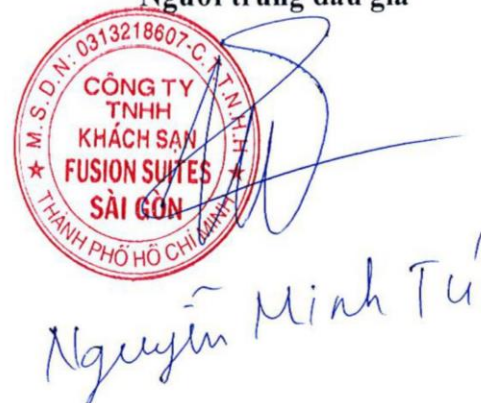 Người trúng đấu giá
M.S.D.N: 0313218607-C.T.T.N.H.H
CÔNG TY
TNHH
KHÁCH SẠN
FUSION SUITES
SÀI GÒN
THÀNH PHỐ HỒ CHÍ MINH
Nguyễn Minh Tú